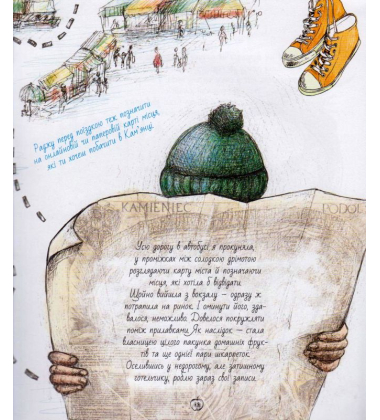 Раджу перед поїздкою теж позначити
на онлайновій чи паперовій карті місця,
які ти хочеш побачити в Кам'янці
KAMIENIEC PODOL
Усю дорогу в автобусі я прокуняла,
у проміжках між солодкою дрімотою
розглядаючи карту міста й позначаючи
місця, які хотіла б відвідати.
Щойно вийшла з вокзалу — одразу ж
потрапила на ринок. І оминути його, зда-
валося, неможливо. Довелося покружляти
поміж прилавками. Як наслідок — стала
власницею цілого пакунка домашніх фрук-
тів та ще однієї пари шкарпеток.
Оселившись у недорогому, але затишному
готельчику, роблю зараз свої записи.